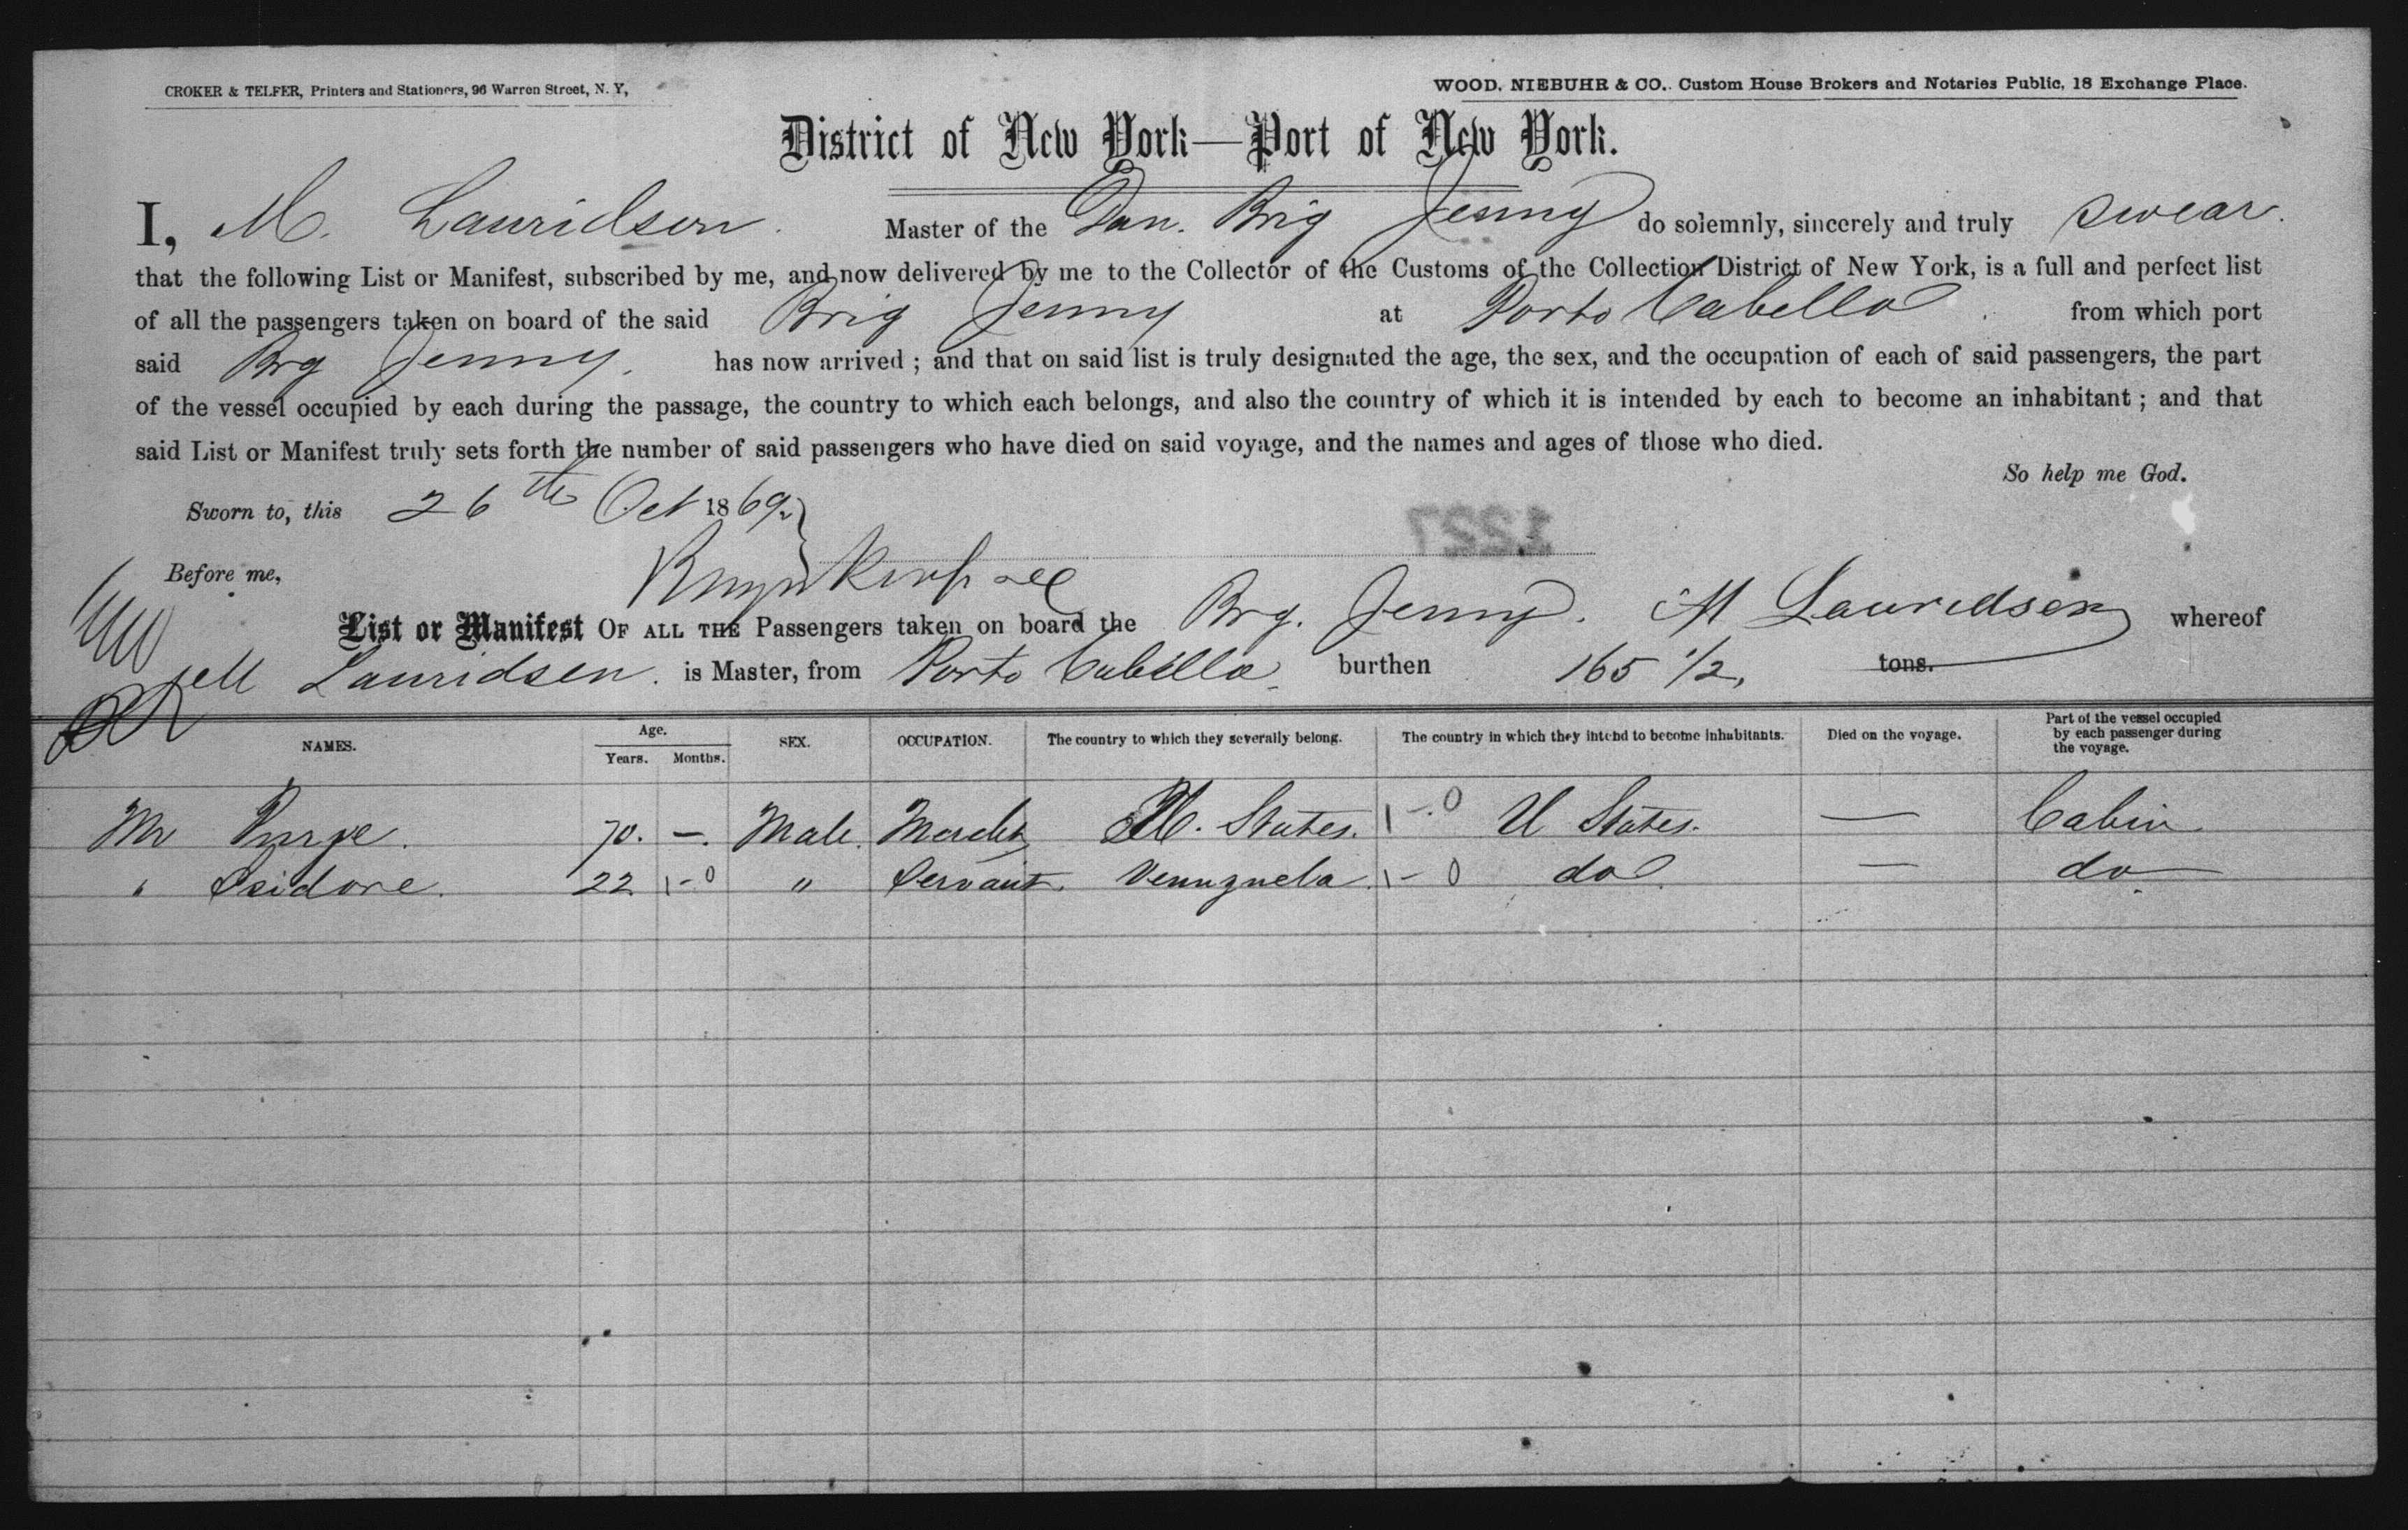 CROKER & TELFER, Printers and Stationers, 96 Warren Street, N. Y,
WOOD, NIEBUHR & CO.. Custom House Brokers and Notaries Public, 18 Exchange Place.
District of New York—Port of New York.
I, M. Lauridsen. Master of the Dan. Brig Jenny do solemnly, sincerely and truly swear.
that the following List or Manifest, subscribed by me, and now delivered by me to the Collector of the Customs of the Collection District of New York, is a full and perfect list
of all the passengers taken on board of the said Brig Jenny at Porto Cabello from which port
said Brg Jenny. has now arrived ; and that on said list is truly designated the age, the sex, and the occupation of each of said passengers, the part
of the vessel occupied by each during the passage, the country to which each belongs, and also the country of which it is intended by each to become an inhabitant ; and that
said List or Manifest truly sets forth the number of said passengers who have died on said voyage, and the names and ages of those who died.
So help me God.
Sworn to, this 26th Oct 1869.
1227
Before me,
List or Manifest OF ALL THE Passengers taken on board the Brg. Jenny. M Lauridsen whereof
M Lauridsen. is Master, from Porto Cabello burthen 165 1/2, tons.
NAMES. Age. Years. Months. SEX. OCCUPATION. The country to which they severally belong. The country in which they intend to become inhabitants. Died on the voyage. Part of the vessel occupied by each passenger during the voyage.
Mr 70. —. Male. U. States. 1-0 U States. — Cabin
" Isidore. 22 1-0 " Servant. Venuzuela. 1-0 do — do